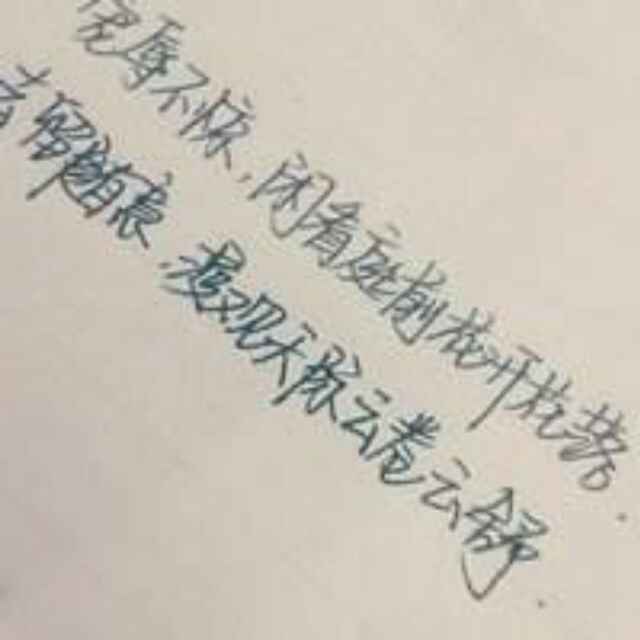 宠辱不惊,闲看庭前花开花落.
去留随意,漫观天际云卷云舒.